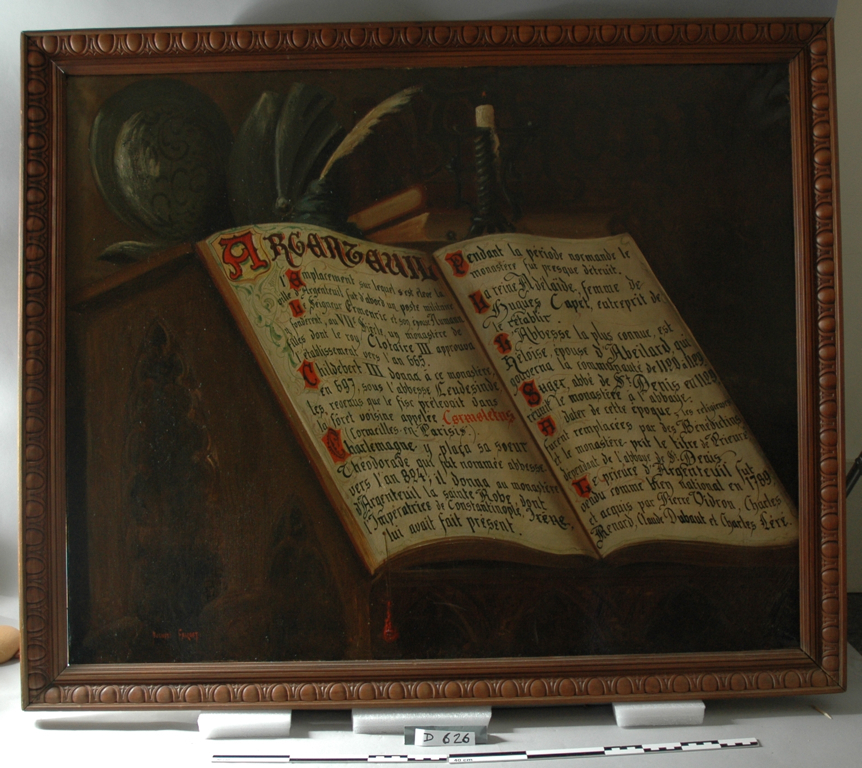 Argenteuil
L'emplacement sur lequel s'est élevé la
ville d'Argenteuil fut d'abord un poste militaire
Le Seigneur Ermenric et son épouse Numana
fondèrent, au VIIe Siècle, un monastère de
filles dont le roy Clotaire III approuva
l'établissement vers l'an 665.
Childebert III donna à ce monastère,
en 697, sous l'abbesse Leudesinde
les revenus que le fisc prélevait dans
la forêt voisine appelée Cormoletus
(Cormeilles-en-Parisis).
Charlemagne y plaça sa sœur
Théodorade qui fut nommée abbesse
vers l'an 824; il donna au monastère
d'Argenteuil la sainte Robe, dont
l'Impératrice de Constantinople, Irène,
lui avait fait présent.
Pendant la période normande le
monastère fut presque détruit.
La reine Adélaïde, femme de
Hugues Capet, entreprit de
le rétablir.
L'Abbesse la plus connue est
Héloïse, épouse d'Abeilard, qui
gouverna la communauté de 1120 à 1129.
Suger, abbé de St Denis en 1129,
réunit le monastère à l'abbaye.
A dater de cette époque, les religieuses
furent remplacées par des Bénédictins
et le monastère prit le titre de Prieuré
dépendant de l'abbaye de St Denis.
Le prieuré d'Argenteuil fut
vendu comme bien national en 1789
et acquis par Pierre Vidron, Charles
Renard, Claude Dubaut et Charles Lère.
D 626